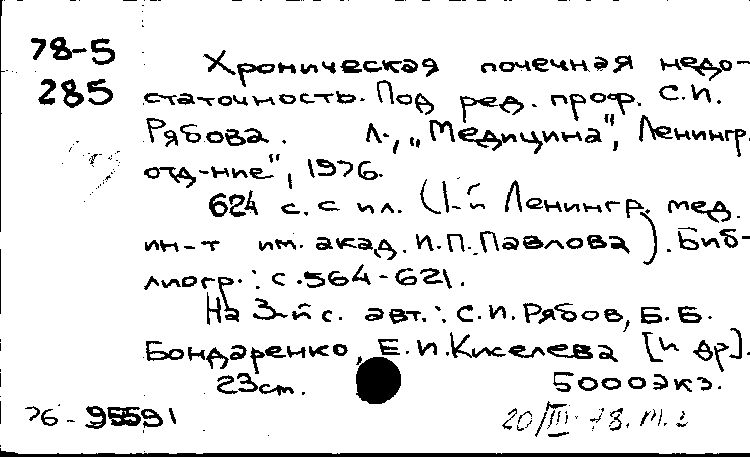 78-5
285
Хроническая почечная недо-
статочность. Под ред. проф. С.И.
Рябова. Л., „Медицина", Ленингр.
отд-ние", 1976.
624 с. с ил. (1-й Ленингр. мед.
ин-т им. акад. И.П. Павлова). Биб-
лиогр.: с. 564-621.
На 3-й с. авт.: С.И. Рябов, Б.Б.
Бондаренко, Е.И. Киселева [и др].
23 cm. 5000 экз.
76-95591 20/III-78. т. 2